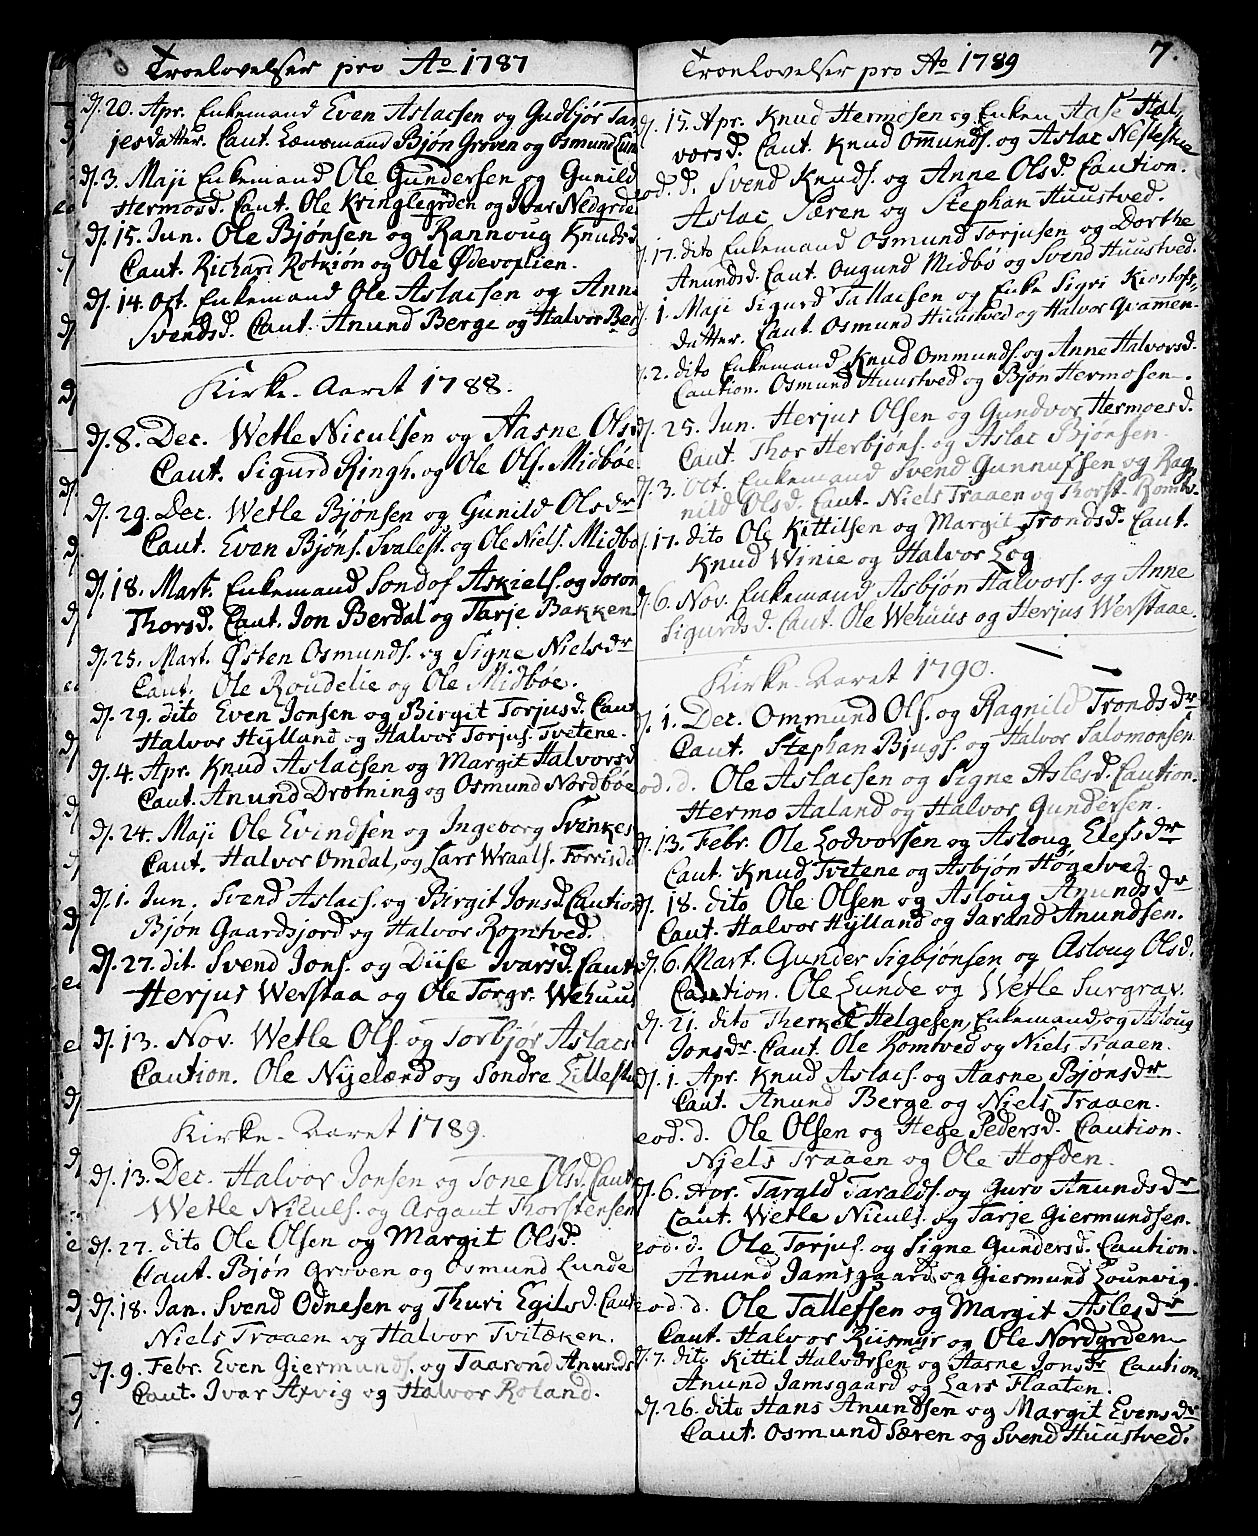 Troelovelser pro Ao 1787
d. 20. Apr. Enkemand Even Aslacsen og Gudbjør Tar
jesdatter. Caut. Lænsmand Bjøn Groven og Osmund Lun
d. 3. Maji Enkemand Ole Gundersen og Gunild
Hermosd. Caut. Ole Kringlegrden og Ivar Nedgrde
d. 15. Jun. Ole Bjønsen og Rannoug Knudsd
Caut. Richard Rotkiøn og Ole Ødevoplien.
d. 14. Oct. Enkemand Ole Aslacsen og Anne
Svendsd. Caut. Anund Berge og Halvor Berg
Kirke-Aaret 1788.
d. 8. Dec. Wetle Niculsen og Aasne Olsd
Caut. Sigurd Ringh. og Ole Ols. Midbøe
d. 29. Dec. Wetle Bjønsen og Gunild Olsdr
Caut. Even Bjøns. Svalest. og Ole Niels. Midbø
d. 18. Mart. Enkemand Sondof Askiels. og Joron
Thorsd. Caut. Jon Berdal og Tarje Bakken
d. 25. Mart. Østen Osmunds. og Signe Nielsdr
Caut. Ole Roudelie og Ole Midbøe.
d. 29. dito Even Jonsen og Birgit Torjusd. Caut
Halvor Hylland og Halvor Torjus. Tvetene.
d. 4. Apr. Knud Aslacsen og Margit Halvorsd
Caut. Anund Drotning og Osmund Nordbøe
d. 24. Maji Ole Evindsen og Ingeborg Svenkes
Caut. Halvor Omdal, og Lars Wraals. Forrisda
d. 1. Jun. Svend Aslacs. og Birgit Jonsd. Caution
Bjøn Gaardsjord og Halvor Romtved.
d. 27. dit. Svend Jons. og Diise Ivarsd. Caut.
Herjus Werstaa og Ole Torgr. Wehuus
d. 13. Nov. Wetle Ols. og Torbjør Aslacs
Caution. Ole Nyelænd og Sondre Lillestu
Kirke-Aaret 1789.
d. 13. Dec. Halvor Jonsen og Tone Olsd. Caut
Wetle Niculs. og Asgaut Thorstensen
d. 27. dito Ole Olsen og Margit Olsd.
Caut. Bjøn Groven og Osmund Lunde
d. 18. Jan. Svend Odnesen og Thuri Egilsd. Caut
Niels Traaen og Halvor Tvitæken.
d. 9. Febr. Even Giermunds. og Taarond Anunds
Caut. Ivar Axvig og Halvor Roland.
Troelovelser pro Ao 1789
7.
d. 15. Apr. Knud Hermosen og Enken Aase Hal,
vorsd. Caut. Knud Omunds. og Aslac Nestestue
eod. d. Svend Knuds. og Anne Olsd. Caution.
Aslac Særen og Stephan Huustved.
d. 17. dito Enkemand Osmund Torjusen og Dorthe
Anundsd. Caut. Ougund Midbø og Svend Huustved.
d. 1. Maji Sigurd Tallacsen og Enke Sigri Kirstofs,
datter. Caut. Osmund Huustved og Halvor Gramen.
d. 2. dito Enkemand Knud Ommunds. og Anne Halvorsd.
Caution. Osmund Huustved og Bjøn Hermosen.
d. 25. Jun. Herjus Olsen og Gundvor Hermoesd.
Caut. Thor Herbjøns. og Aslac Bjønsen.
d. 3. Oct. Enkemand Svend Gunnufsen og Rag
nild Olsd. Caut. Niels Traaen og Thorst. Romtv.
d. 17. dito Ole Kittilsen og Margit Trondsd. Caut.
Knud Winie og Halvor Log
d. 6. Nov. Enkemand Asbjøn Halvors. og Anne
Sigurdsd. Caut. Ole Wehuus og Herjus Werstaae.
Kirke-Aaret 1790.
d. 1. Dec. Ommund Ols. og Ragnild Trondsdr
Caut. Stephan Bjugs. og Halvor Salomonsen.
eod. d. Ole Aslacsen og Signe Aslesd. Caution.
Hermo Aaland og Halvor Gundersen.
d. 13. Febr. Ole Lodvorsen og Asloug Elefsdr
Caut. Knud Tvetene og Asbjøn Høgetved.
d. 18. dito Ole Olsen og Asloug Anundsdr
Caut. Halvor Hylland og Jarand Anundsen.
d. 6. Mart. Gunder Sigbjønsen og Asloug Olsd.
Caution. Ole Lunde og Wetle Surgrav.
d. 21. dito Therkel Helgesen, Enkemand og Asloug
Jonsdr. Caut. Ole Romtved og Niels Traaen.
d. 1. Apr. Knud Aslacs. og Aasne Bjønsdr
Caut. Anund Berge og Niels Traaen.
eod. d. Ole Olsen og Hege Pedersd. Caution.
Njels Traaen og Ole Hofden.
d. 6. Apr. Targld Taralds. og Guro Anundsdr
Caut. Wetle Niculs. og Tarje Giermundsen.
eod. d. Ole Torjus. og Signe Gundersd. Caution.
Anund Jamsgaard og Giermund Lounvig.
eod. d. Ole Tallefsen og Margit Aslesdr
Caut. Halvor Riismyr og Ole Nordgrden
d. 7. dito Kittil Halvorsen og Aasne Jonsdr Caution
Anund Jamsgaard og Lars Flaaten.
d. 26. dito Hans Anundsen og Margit Evensdr
Caut. Osmund Særen og Svend Huustved.